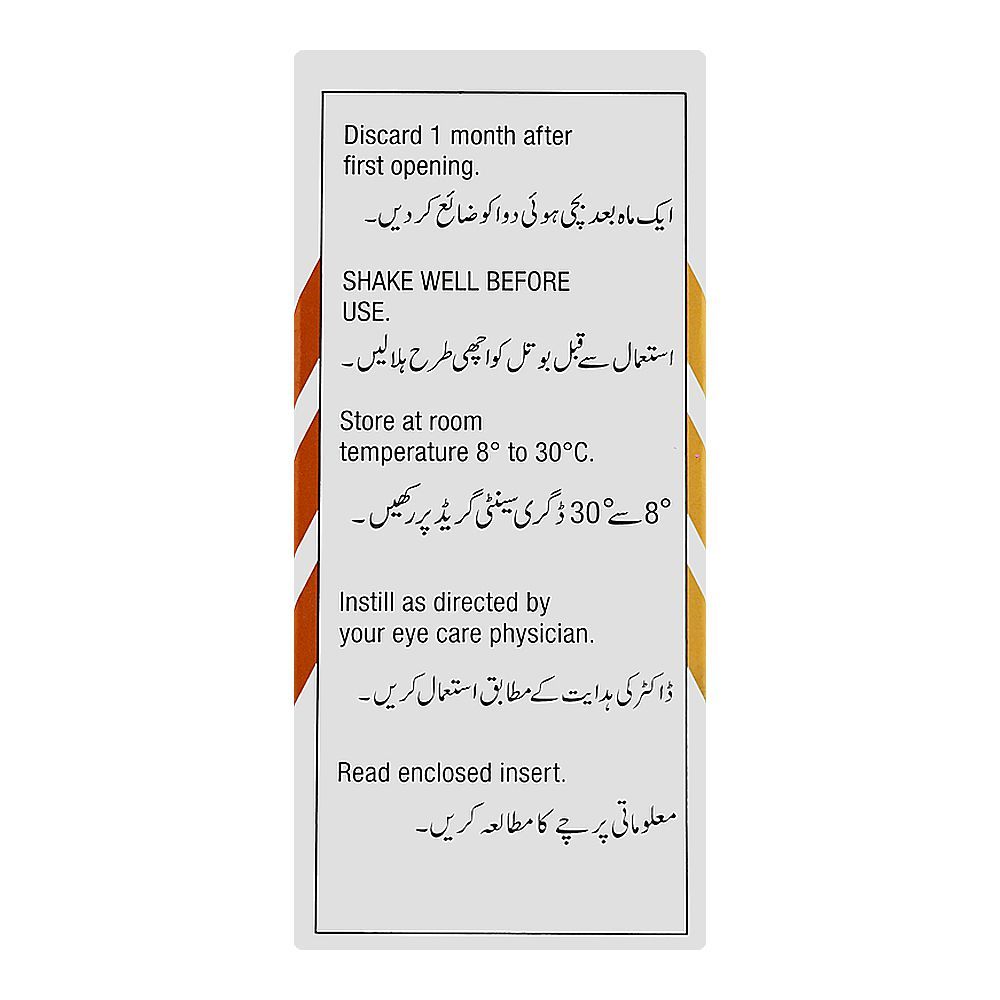 Discard 1 month after
first opening.
ایک ماہ بعد بچی ہوئی دوا کو ضائع کر دیں۔
SHAKE WELL BEFORE
USE.
استعمال سے قبل بوتل کو اچھی طرح ہلا لیں۔
Store at room
temperature 8° to 30°C.
8° سے 30° ڈگری سینٹی گریڈ پر رکھیں۔
Instill as directed by
your eye care physician.
ڈاکٹر کی ہدایت کے مطابق استعمال کریں۔
Read enclosed insert.
معلوماتی پرچے کا مطالعہ کریں۔